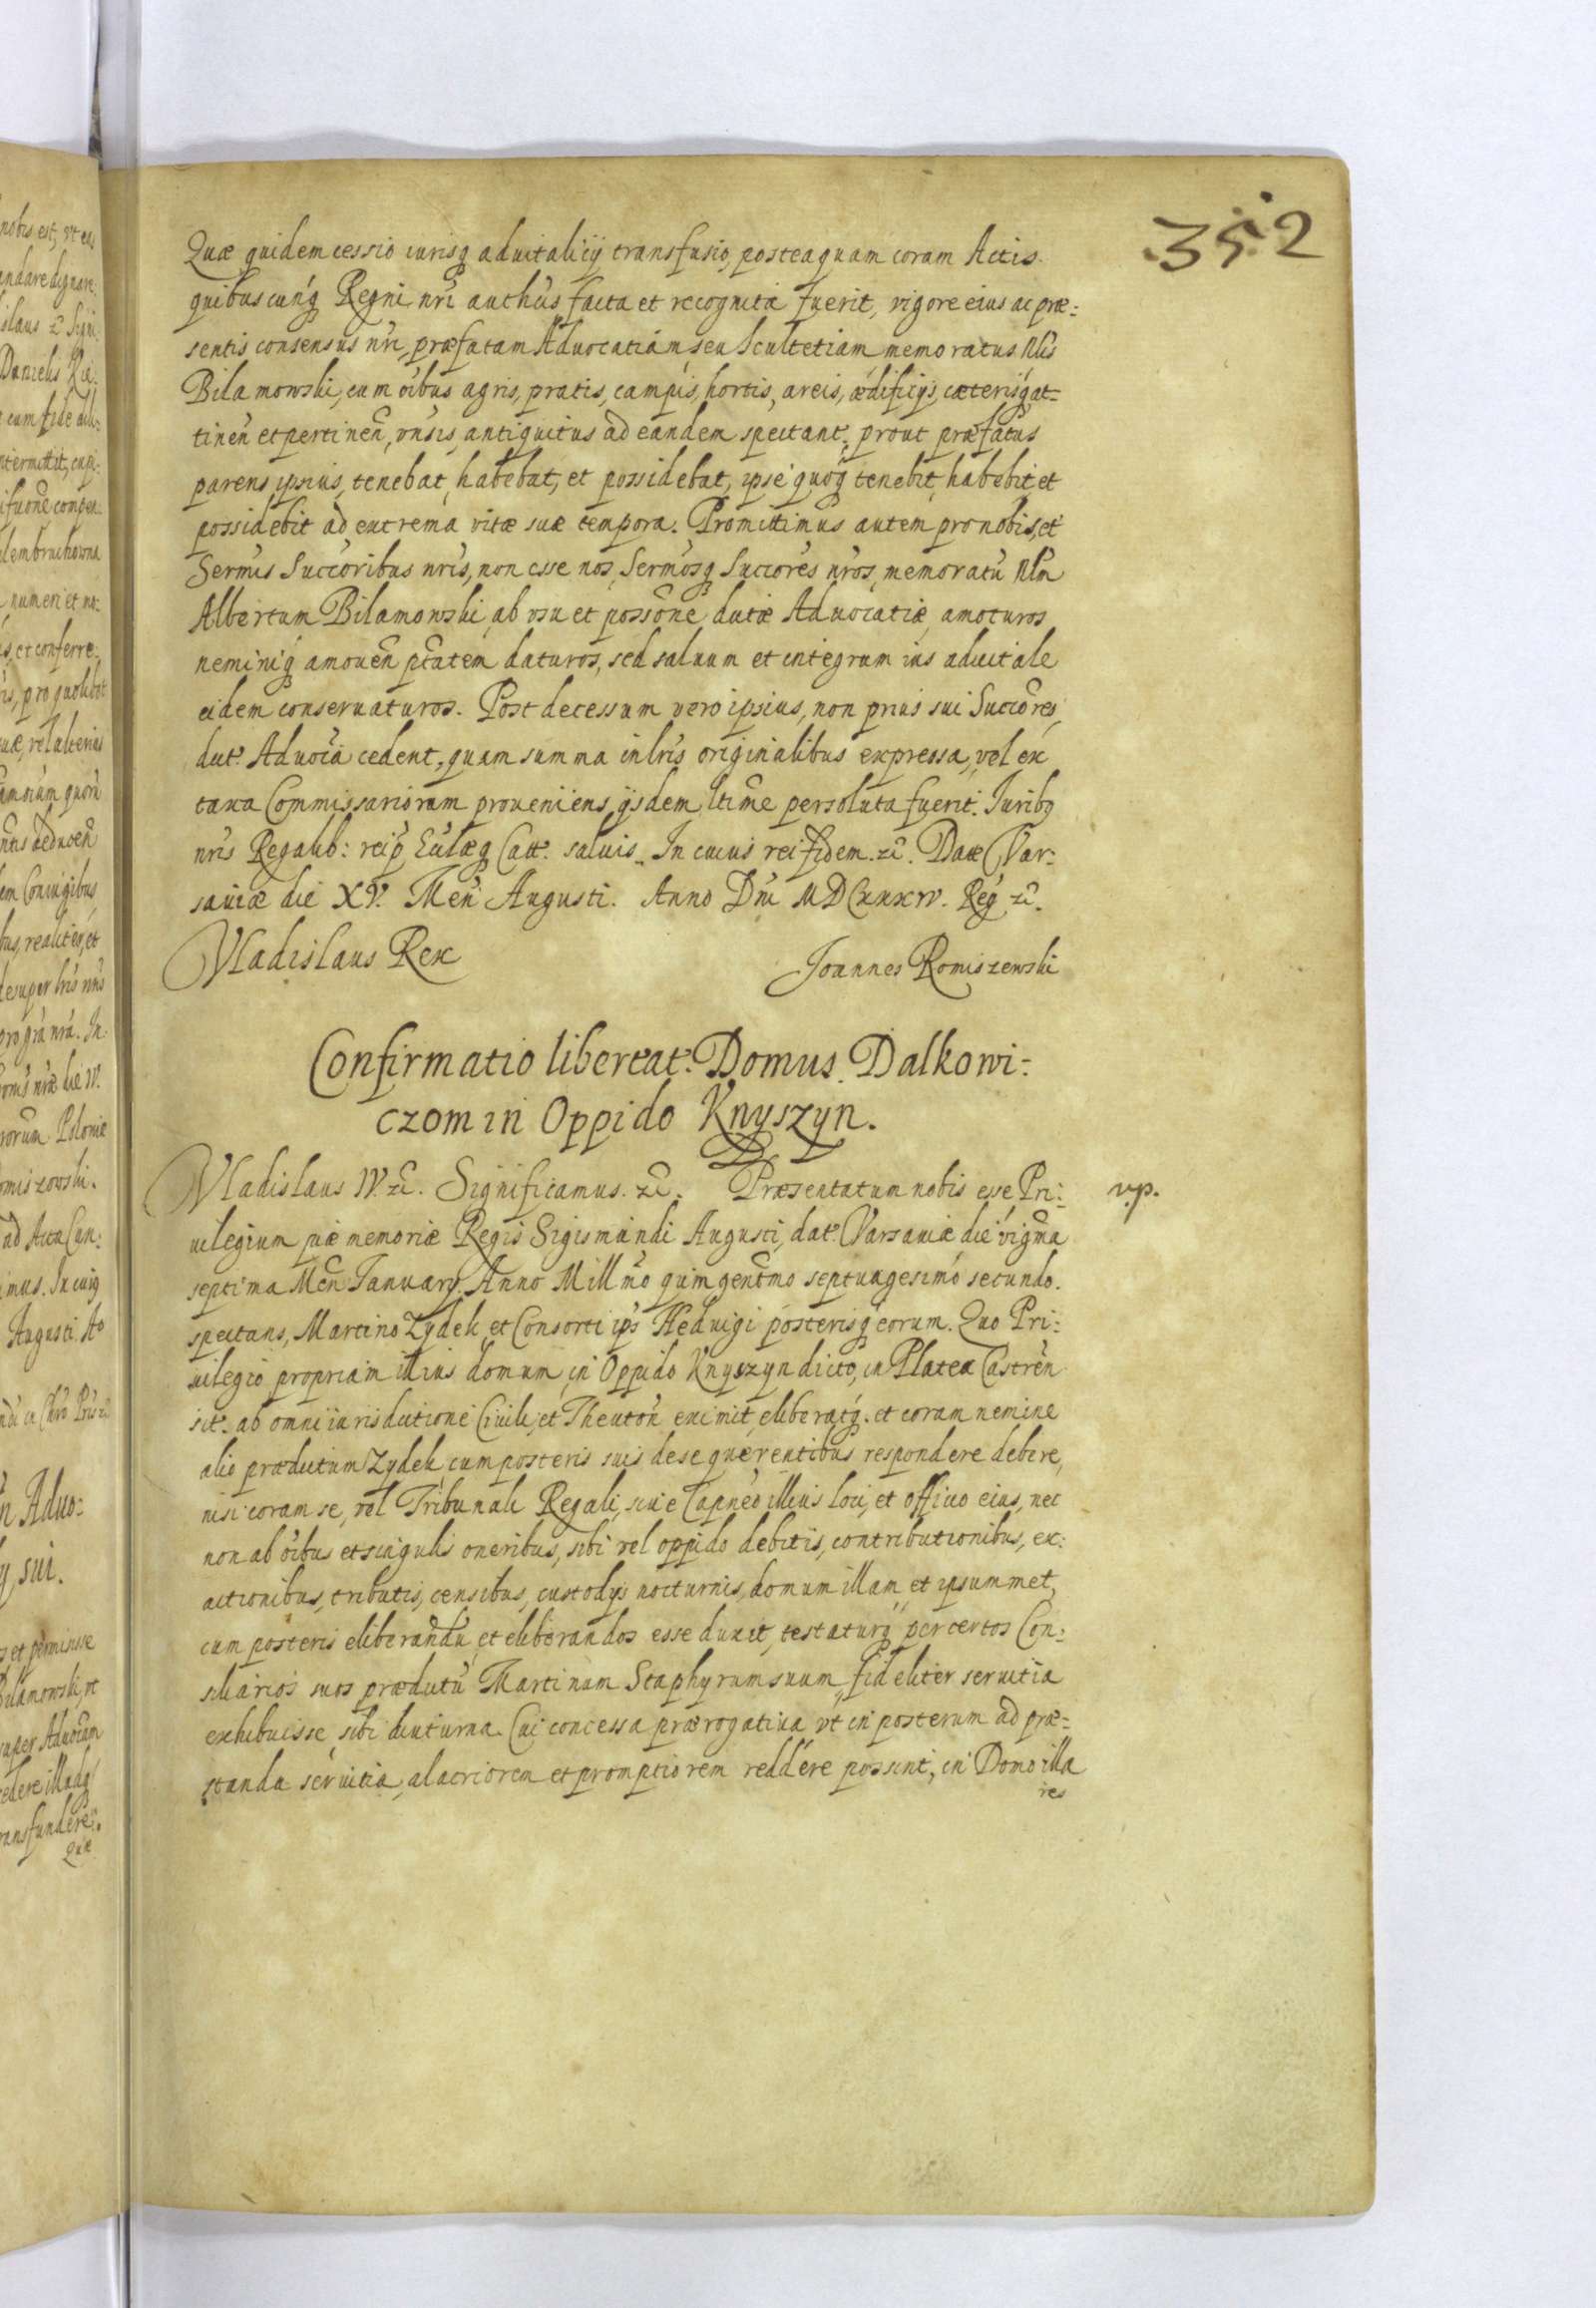 352
Quæ quidem cessio iurisq aduitalicÿ transfusio, posteaquam coram Actis
quibuscunq Regni nri authẽs facta et recognita fuerit, vigore eius ac præ:
sentis consensus nri, præfatam Aduocatiam, seu Scultetiam memoratus Nlis
Bilamowski, cum oibus agris, pratis, campis, hortis, areis, ædificÿs, cæterisq at=
tinen et pertinen, vnsis, antiquitus ad eandem spectant. prout præfatus
parens ipsius, tenebat, habebat, et possidebat, ipse quoq tenebit, habebit et
possidebit ad extrema vitæ suæ tempora. Promittimus autem pro nobis, et
Sermis Succoribus nris, non esse nos, Sermosq Succores nros, memoratu Nlm
Albertum Bilamowski, ab vsu et possone dictæ Aduocatiæ amoturos
neminiq amouen ptatem daturos, sed saluum et integrum ius aduitale
eidem conseruaturos. Post decessum vero ipsius, non prius sui Succores,
dict. Aduocia cedent, quam summa in lris originalibus expressa, vel ex
taxa Commissariorum proueniens, ÿsdem ltime persoluta fuerit. Juribq
nris Regalib: reip Ecclæq Catt. saluis. In cuius rei fidem. zc. Datæ Var:
sauiæ die XV. Men Augusti. Anno Dni MDCXXXIV. Reg zc.
Vladislaus Rex
Joannes Romiszewski
Confirmatio libereat. Domus Dalkowi:
czom in Oppido Knyszyn.
Vladislaus IV. zc. Significamus. zc. Præsentatum nobis esse Pri: v.p.
uilegium piæ memoriæ Regis Sigismundi Augusti, dat. Varsauiæ die vigma
septima Men Januarÿ. Anno Millmo quingentmo septuagesimo secundo.
spectans, Martino Zydek, et Consorti ips Heduigi posterisq eorum. Quo Pri:
uilegio propriam illius domum, in Oppido Knyszyn dicto, in Platea Castren
sit. ab omni iurisdictione Ciuili, et Theuton eximit, eliberatq. et coram nemine
alio prædictum Zydek cum posteris suis de se quærentibus respondere debere,
nisi coram se, vel Tribunali Regali, siue Capneo illius loci, et officio eius, nec
non ab oibus et singulis oneribus, sibi vel oppido debitis, contributionibus, ex:
actionibus, tributis, censibus, custodÿs nocturnis, domum illam, et ipsummet,
cum posteris eliberandu, et eliberandos esse duxit, testaturq per certos Con:
siliarios suos prædictu Martinum Staphyrum suum, fideliter seruitia
exhibuisse sibi diuturna. Cui concessa prærogatiua vt in posterum ad præ=
standa seruitia, alacriorem et promptiorem reddere possint, in Domo illa
res